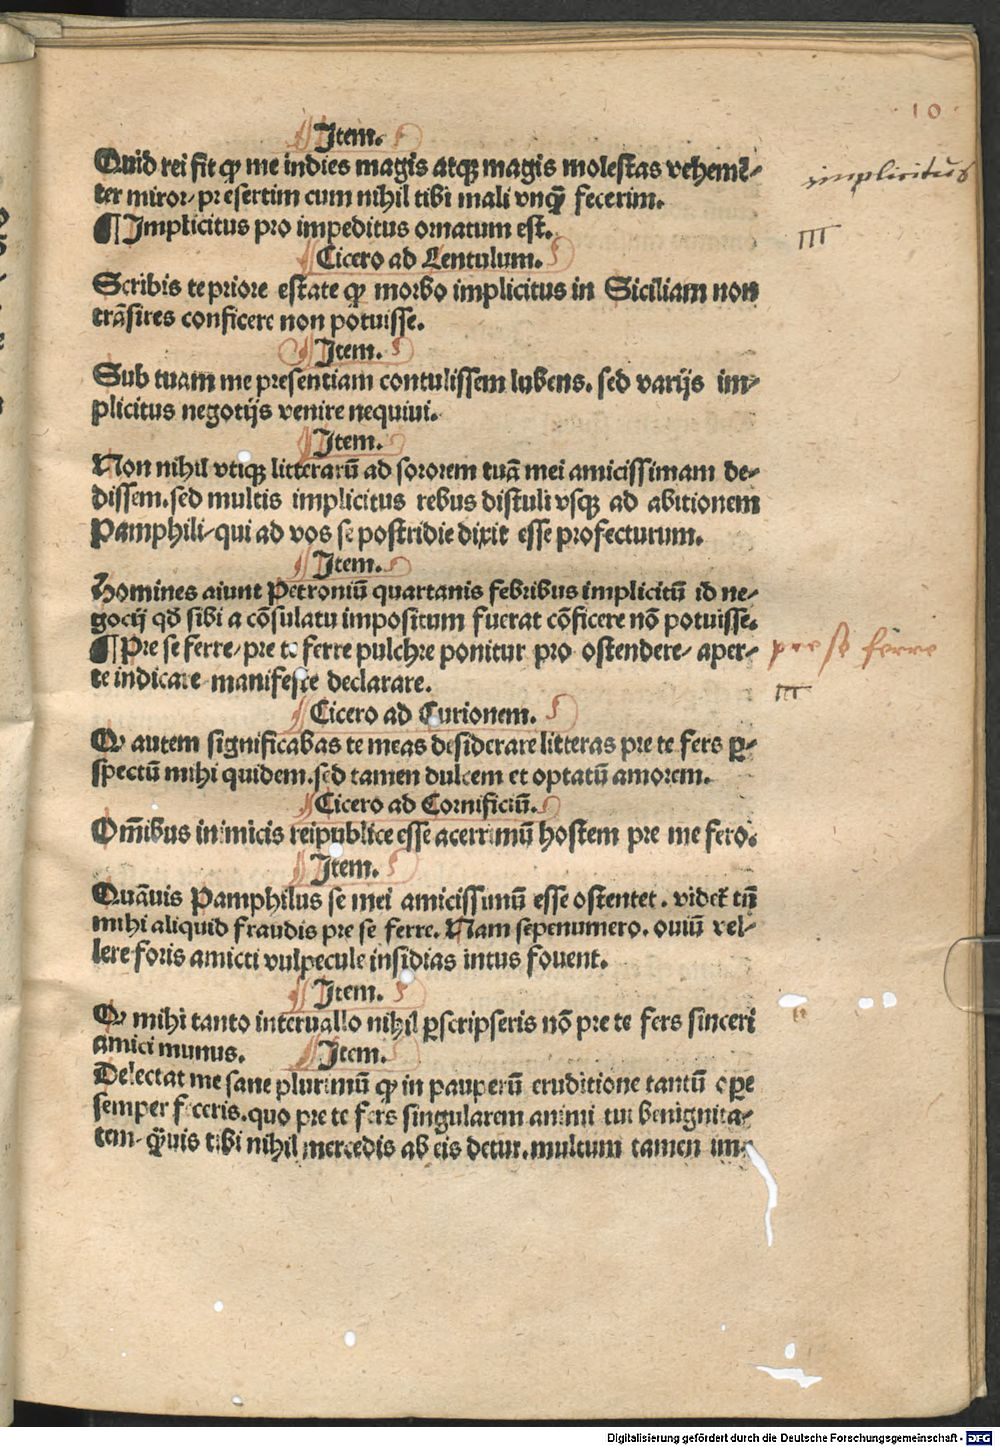 10
Item.
Quid rei fit ꝙ me indies magis atqꝫ magis molestas vehemē⸗
ter miror/ presertim cum nihil tibi mali vnqͣ̄ fecerim.
implicitus
¶ Implicitus pro impeditus ornatum est.
III
Cicero ad Lentulum.
Scribis te priore estate ꝙ morbo implicitus in Siciliam non
trāsires conficere non potuisse.
Item.
Sub tuam me presentiam contulissem lubens. sed varijs im⸗
plicitus negotijs venire nequiui.
Item.
Non nihil vtiqꝫ litterarū ad sororem tuā mei amicissimam de⸗
dissem. sed multis implicitus rebus distuli vsqꝫ ad abitionem
Pamphili/ qui ad vos se postridie dixit esse profecturum.
Item.
Homines aiunt Petroniū quartanis febribus implicitū id ne⸗
gocij qđ sibi a cōsulatu impositum fuerat cōficere nō potuisse.
¶ Pre se ferre/ pre te ferre pulchre ponitur pro ostendere/ aper⸗
pre se ferre
te indicare manifeste declarare.
III
Cicero ad Curionem.
Q autem significabas te meas desiderare litteras pre te fers ꝑ⸗
spectū mihi quidem. sed tamen dulcem et optatū amorem.
Cicero ad Cornificiū.
Om̄ibus inimicis reipublice esse acerrimū hostem pre me fero.
Item.
Quāuis Pamphilus se mei amicissimū esse ostentet. videt᷑ tn̄
mihi aliquid fraudis pre se ferre. Nam sepenumero. ouiū vel⸗
lere foris amicti vulpecule insidias intus fouent.
Item.
Q mihi tanto interuallo nihil ꝑscripseris nō pre te fers sinceri
amici munus.
Item.
Delectat me sane plurimū ꝙ in pauperū eruditione tantū oꝑe
semper feceris. quo pre te fers singularem animi tui benignita⸗
tem/ qͣ̄uis tibi nihil mercedis ab eis detur. multum tamen im⸗
Digitalisierung gefördert durch die Deutsche Forschungsgemeinschaft - DFG